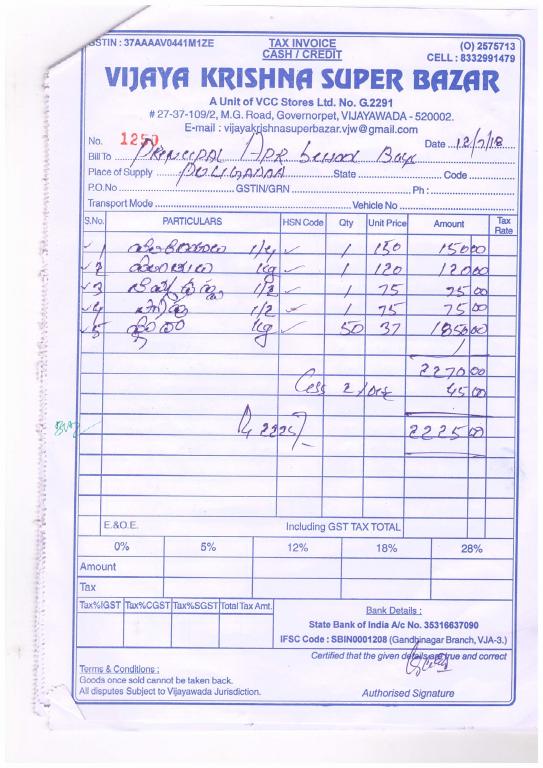 GSTIN : 37AAAAV0441M1ZE TAX INVOICE (O) 2575713
CASH / CREDIT CELL : 8332991479
VIJAYA KRISHNA SUPER BAZAR
A Unit of VCC Stores Ltd. No. G.2291
# 27-37-109/2, M.G. Road, Governorpet, VIJAYAWADA - 520002.
E-mail : vijayakrishnasuperbazar.vjw@gmail.com
No. 1250 Date 12/7/18
Bill To PRINCIPAL APR School Boys
Place of Supply PULIGADDA State Code
P.O.No GSTIN/GRN Ph :
Transport Mode Vehicle No
S.No. PARTICULARS HSN Code Qty Unit Price Amount Tax Rate
1 1/4 1 150 150 00
2 kg 1 120 120 00
3 1/2 1 75 75 00
4 1/2 1 75 75 00
5 kg 50 37 1850 00
2270 00
Less 2 45 00
2225/- 2225 00
E.&O.E. Including GST TAX TOTAL
0% 5% 12% 18% 28%
Amount
Tax
Tax%IGST Tax%CGST Tax%SGST Total Tax Amt.
Bank Details :
State Bank of India A/c No. 35316637090
IFSC Code : SBIN0001208 (Gandhinagar Branch, VJA-3.)
Certified that the given details are true and correct
Terms & Conditions :
Goods once sold cannot be taken back.
All disputes Subject to Vijayawada Jurisdiction. Authorised Signature